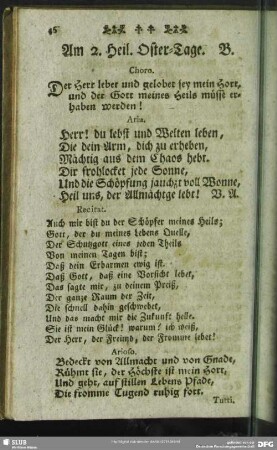 46
Am 2. Heil. Oster-Tage. B.
Choro.
Der Herr lebet und gelobet sey mein Hort,
und der Gott meines Heils müsse er-
haben werden!
Aria.
Herr! du lebst und Welten leben,
Die dein Arm, dich zu erheben,
Mächtig aus dem Chaos hebt.
Dir frohlocket jede Sonne,
Und die Schöpfung jauchzt voll Wonne,
Heil uns, der Allmächtge lebt! V. A.
Recitat.
Auch mir bist du der Schöpfer meines Heils;
Gott, der du meines Lebens Quelle,
Der Schutzgott eines jeden Theils
Von meinen Tagen bist;
Daß dein Erbarmen ewig ist.
Daß Gott, daß eine Vorsicht lebet,
Das sagt mir, zu deinem Preiß,
Der ganze Raum der Zeit,
Die schnell dahin geschwebet,
Und das macht mir die Zukunft helle.
Sie ist mein Glück! warum? ich weiß,
Der Herr, der Freund, der Fromme lebet!
Arioso.
Bedeckt von Allmacht und von Gnade,
Rühmt sie, der Höchste ist mein Hort,
Und geht, auf stillen Lebens Pfade,
Die fromme Tugend ruhig fort.
Tutti.
SLUB